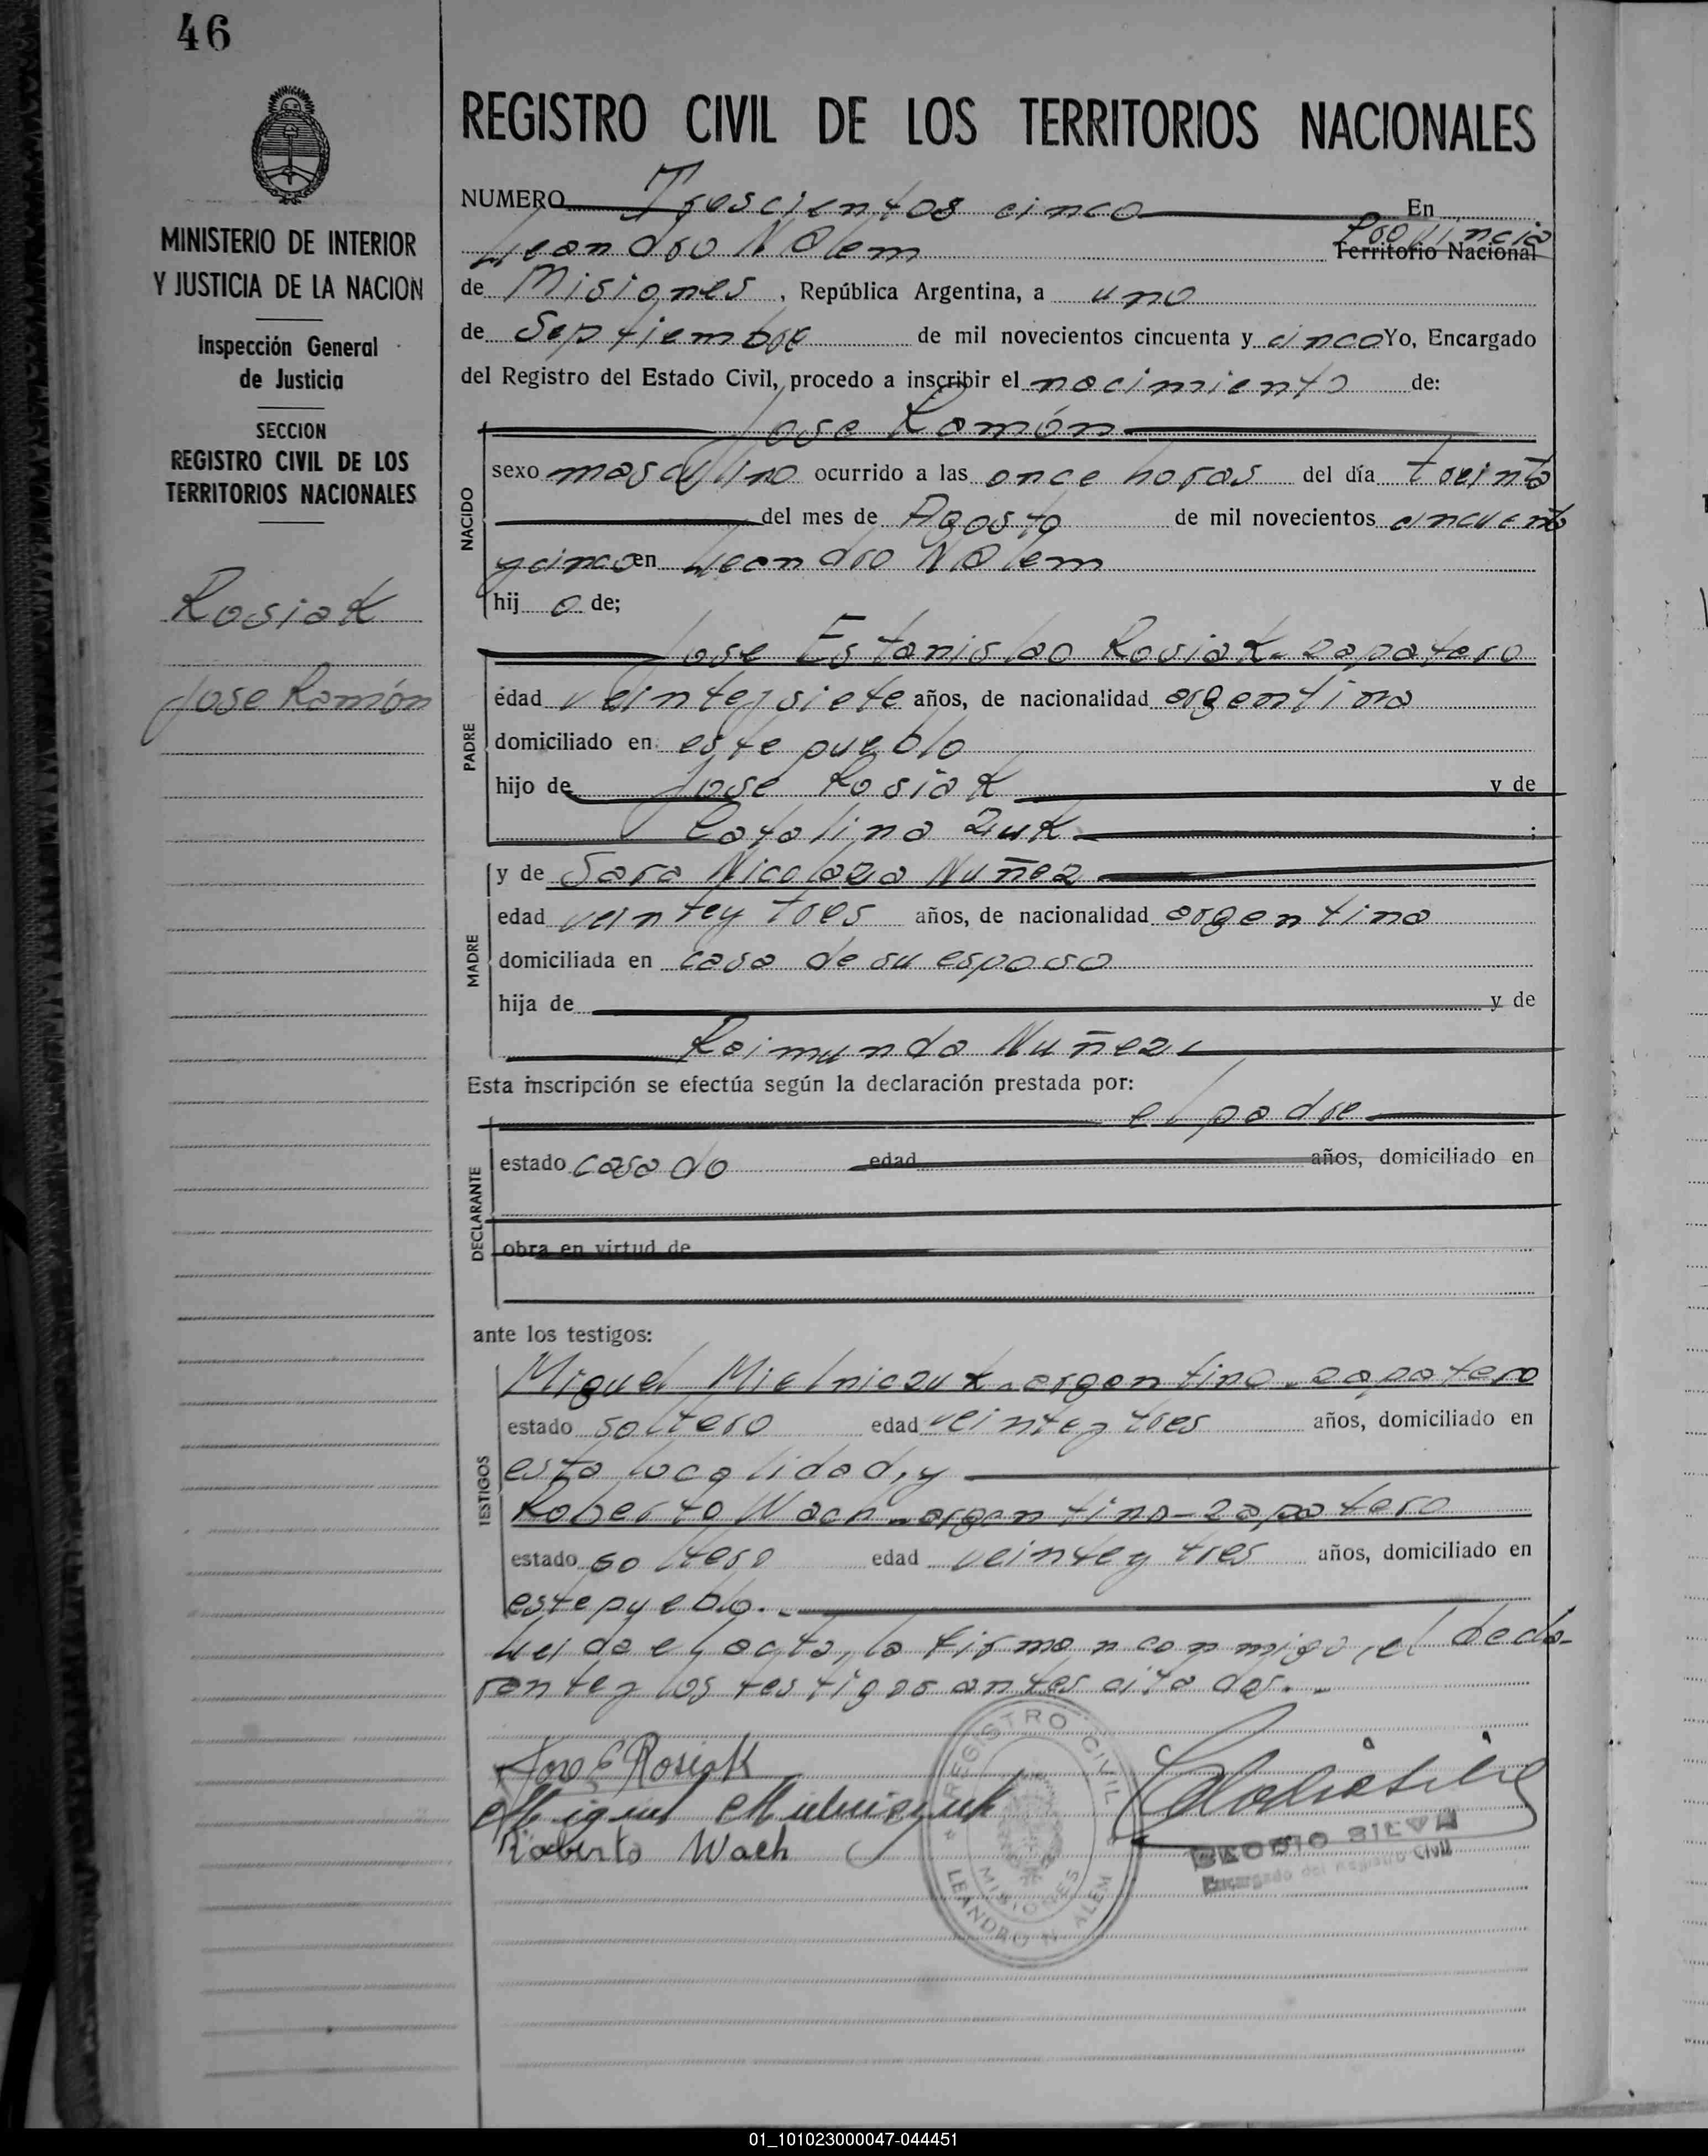 46
REGISTRO CIVIL DE LOS TERRITORIOS NACIONALES
MINISTERIO DE INTERIOR
Y JUSTICIA DE LA NACION
Inspección General
de Justicia
SECCION
REGISTRO CIVIL DE LOS
TERRITORIOS NACIONALES
Rosiak
Jose Ramón
NUMERO Trescientos cinco En
Leandro N Alem Provincia
Territorio Nacional
de Misiones, República Argentina, a uno
de Septiembre de mil novecientos cincuenta y cinco Yo, Encargado
del Registro del Estado Civil, procedo a inscribir el nacimiento de:
Jose Ramón
NACIDO
sexo masculino ocurrido a las once horas del día treinta
del mes de Agosto de mil novecientos cincuenta
y cinco en Leandro N Alem
hij o de;
PADRE
Jose Estanislao Rosiak - zapatero
edad veinte y siete años, de nacionalidad argentina
domiciliado en este pueblo
hijo de Jose Rosiak y de
Catalina Zuk ;
MADRE
y de Sara Nicolaza Nuñez
edad veinte y tres años, de nacionalidad argentina
domiciliada en casa de su esposo
hija de y de
Raimunda Nuñez
Esta inscripción se efectúa según la declaración prestada por:
el padre
DECLARANTE
estado casado edad años, domiciliado en
obra en virtud de
ante los testigos:
TESTIGOS
Miguel Mielniczuk - argentino - zapatero
estado soltero edad veinte y tres años, domiciliado en
esta localidad, y
Roberto Wach - argentino - zapatero
estado soltero edad veinte y tres años, domiciliado en
este pueblo. -
Leida el acta, la firman conmigo, el decla-
rante y los testigos antes citados. -
Jose E Rosiak
Miguel Mielniczuk
Roberto Wach
REGISTRO CIVIL
MISIONES
LEANDRO N. ALEM
SILVA
Encargado del Registro Civil
01_101023000047-044451